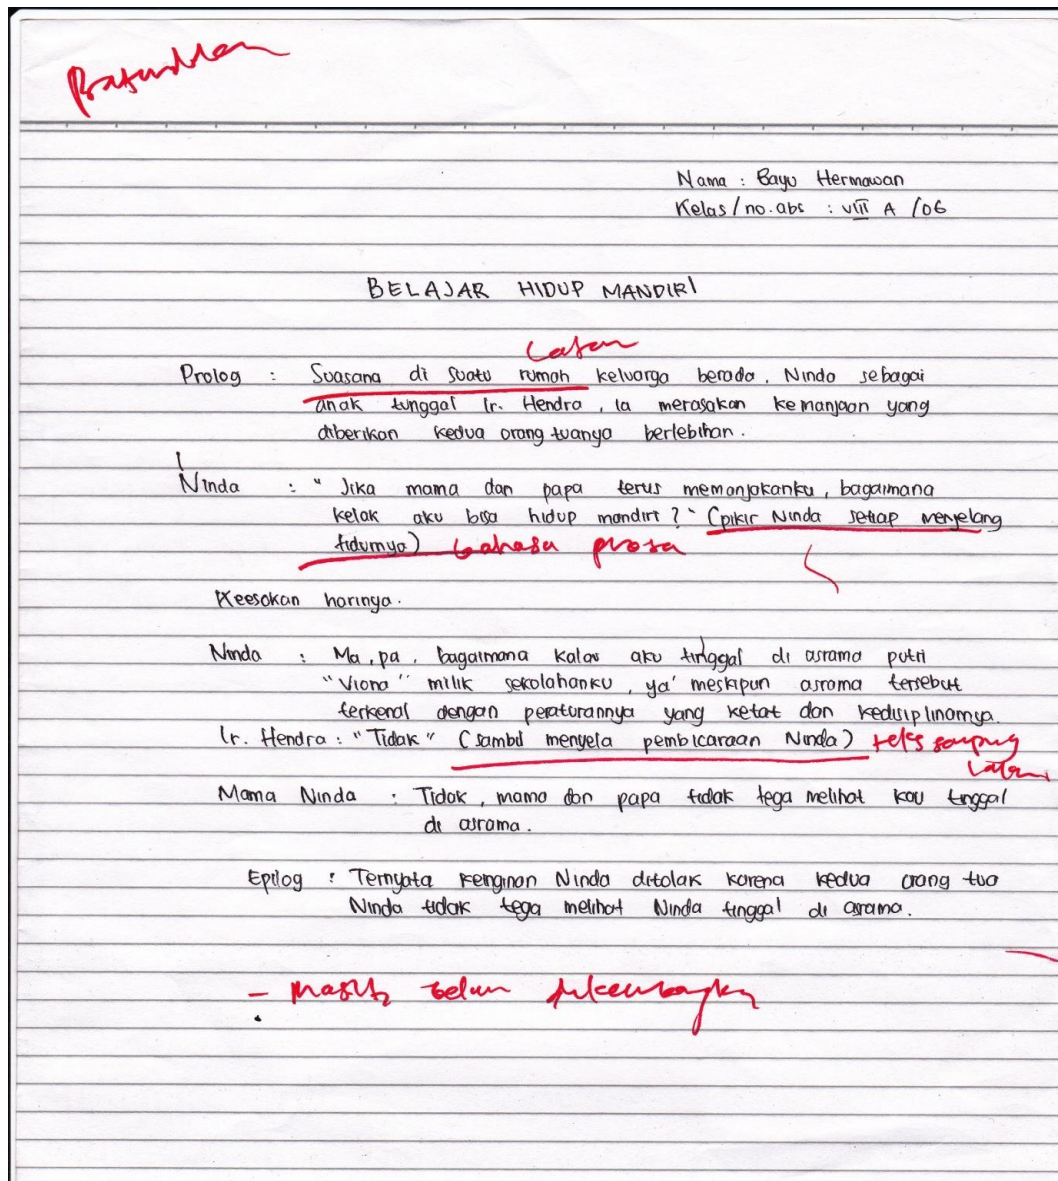 Nama : Bayu Hermawan
Kelas / no. abs : VIII A / 06
BELAJAR HIDUP MANDIRI
Latar
Prolog : Suasana di suatu rumah keluarga berada. Ninda sebagai
anak tunggal Ir. Hendra, Ia merasakan kemanjaan yang
diberikan kedua orang tuanya berlebihan.
Ninda : " Jika mama dan papa terus memanjakanku, bagaimana
kelak aku bisa hidup mandiri ? " (pikir Ninda setiap menjelang
tidurnya) bahasa prosa
Keesokan harinya.
Ninda : Ma, pa, bagaimana kalau aku tinggal di asrama putri
"Viona" milik sekolahanku, ya' meskipun asrama tersebut
terkenal dengan peraturannya yang ketat dan kedisiplinannya.
Ir. Hendra : "Tidak" (sambil menyela pembicaraan Ninda) teks samping
Mama Ninda : Tidak, mama dan papa tidak tega melihat kau tinggal
di asrama.
Epilog : Ternyata keinginan Ninda ditolak karena kedua orang tua
Ninda tidak tega melihat Ninda tinggal di asrama.
- Masih belum dikembangkan